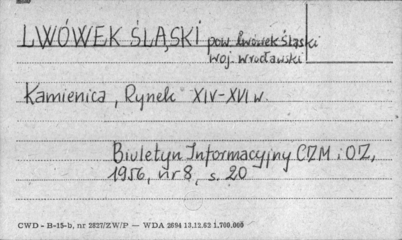 LWÓWEK ŚLĄSKI pow. lwówek śląski
woj. wrocławski
Kamienica, Rynek XIV-XVI w.
Biuletyn Informacyjny CZM i OZ,
1956, nr 8, s. 20
CWD - B-15-b, nr 2827/ZW/P — WDA 2694 13.12.62 1.700.000